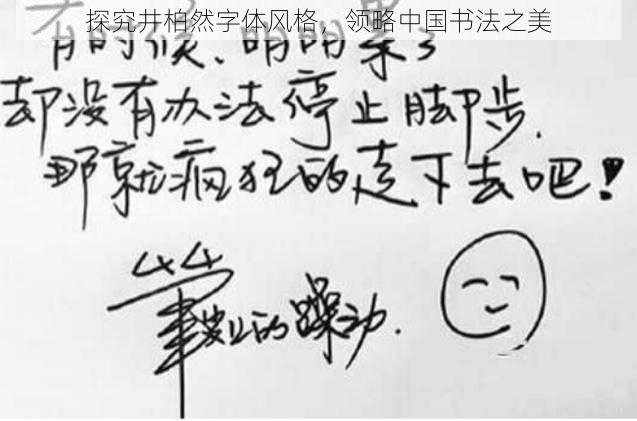 探究井柏然字体风格，领略中国书法之美
有时候、明明累了
却没有办法停止脚步.
那就疯狂的走下去吧！
上的躁动.